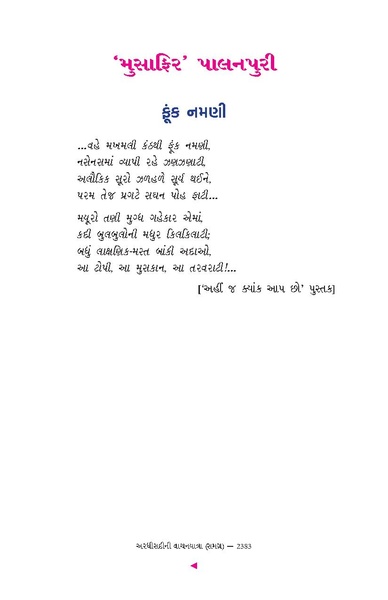 ‘મુસાફિર’ પાલનપુરી
ફૂંક નમણી
...વહે મખમલી કંઠથી ફૂંક નમણી,
નસેનસમાં વ્યાપી રહે ઝણઝણાટી,
અલૌકિક સૂરો ઝળહળે સૂર્ય થઈને,
પરમ તેજ પ્રગટે સઘન પોહ ફાટી...
મયૂરો તણી મુગ્ધ ગહેકાર એમાં,
કદી બુલબુલોની મધુર કિલકિલાટી;
બધું લાક્ષણિક-મસ્ત બાંકી અદાઓ,
આ ટોપી, આ મુસકાન, આ તરવરાટી!...
[‘અહીં જ ક્યાંક આપ છો’ પુસ્તક]
અરધીસદીની વાચનયાત્રા (સમગ્ર) — 2383